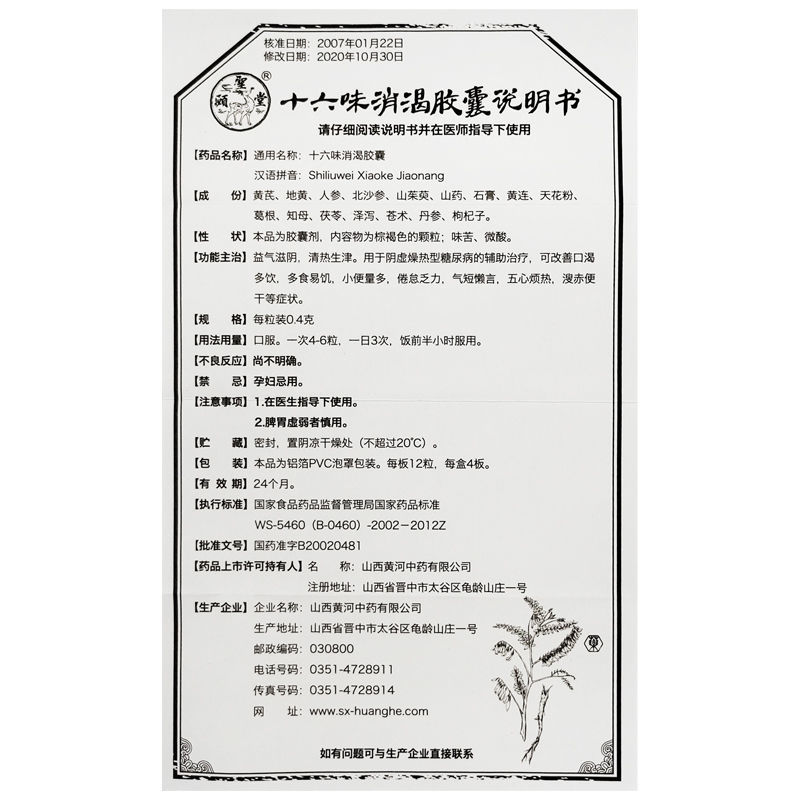 核准日期：2007年01月22日
修改日期：2020年10月30日
聖
颐 堂
®
十六味消渴胶囊说明书
请仔细阅读说明书并在医师指导下使用
【药品名称】通用名称：十六味消渴胶囊
汉语拼音：Shiliuwei Xiaoke Jiaonang
【成　　份】黄芪、地黄、人参、北沙参、山茱萸、山药、石膏、黄连、天花粉、
葛根、知母、茯苓、泽泻、苍术、丹参、枸杞子。
【性　　状】本品为胶囊剂，内容物为棕褐色的颗粒；味苦、微酸。
【功能主治】益气滋阴，清热生津。用于阴虚燥热型糖尿病的辅助治疗，可改善口渴
多饮，多食易饥，小便量多，倦怠乏力，气短懒言，五心烦热，溲赤便
干等症状。
【规　　格】每粒装0.4克
【用法用量】口服。一次4-6粒，一日3次，饭前半小时服用。
【不良反应】尚不明确。
【禁　　忌】孕妇忌用。
【注意事项】1.在医生指导下使用。
2.脾胃虚弱者慎用。
【贮　　藏】密封，置阴凉干燥处（不超过20℃）。
【包　　装】本品为铝箔PVC泡罩包装。每板12粒，每盒4板。
【有 效 期】24个月。
【执行标准】国家食品药品监督管理局国家药品标准
WS-5460（B-0460）-2002－2012Z
【批准文号】国药准字B20020481
【药品上市许可持有人】名　　称：山西黄河中药有限公司
注册地址：山西省晋中市太谷区龟龄山庄一号
【生产企业】企业名称：山西黄河中药有限公司
生产地址：山西省晋中市太谷区龟龄山庄一号
邮政编码：030800
电话号码：0351-4728911
传真号码：0351-4728914
网　　址：www.sx-huanghe.com
如有问题可与生产企业直接联系